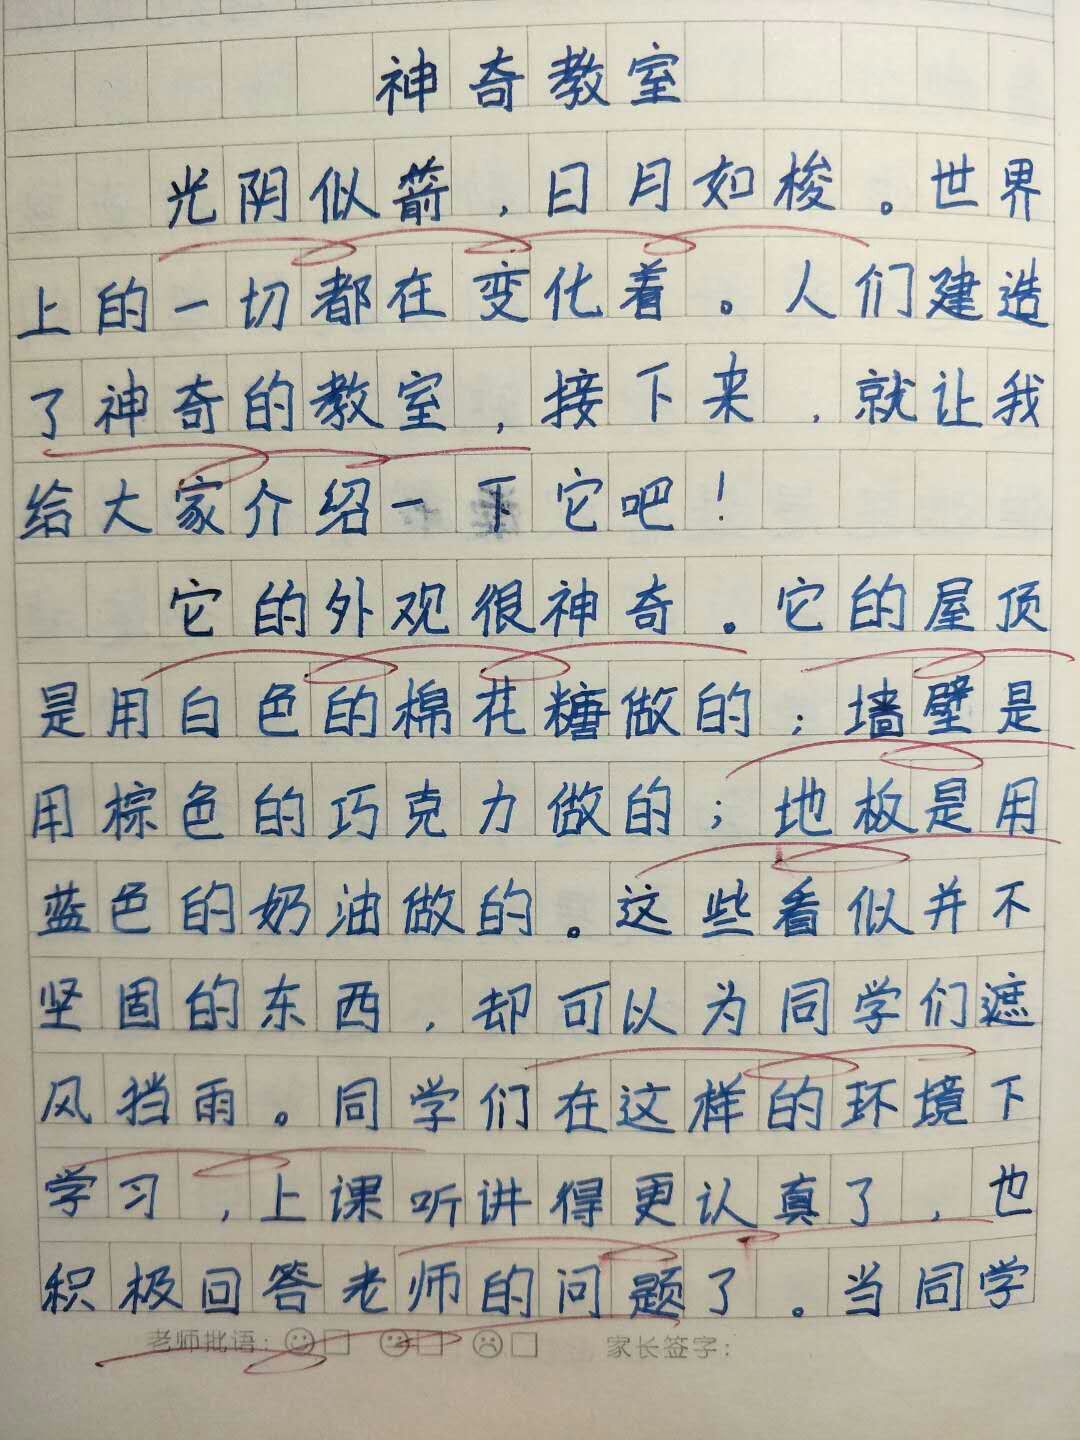 神奇教室
光阴似箭,日月如梭。世界
上的一切都在变化着。人们建造
了神奇的教室,接下来,就让我
给大家介绍一下它吧!
它的外观很神奇。它的屋顶
是用白色的棉花糖做的;墙壁是
用棕色的巧克力做的;地板是用
蓝色的奶油做的。这些看似并不
坚固的东西,却可以为同学们遮
风挡雨。同学们在这样的环境下
学习,上课听讲得更认真了,也
积极回答老师的问题了。当同学
老师批语: 家长签字: